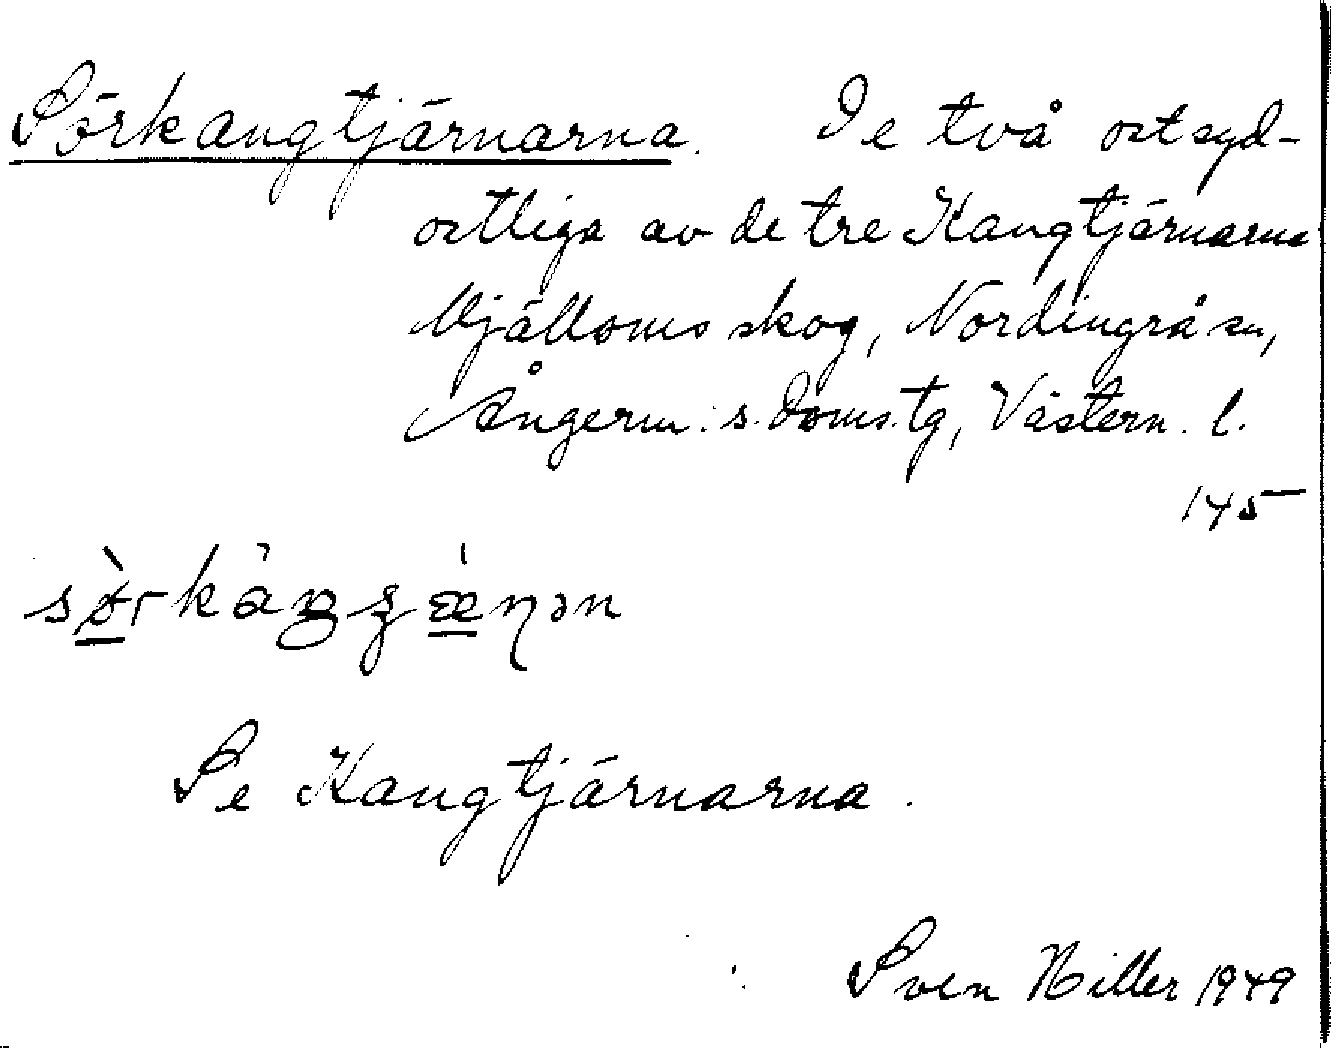 Sörkangtjärnarna. De två ostsyd-
ostliga av de tre Kangtjärnarna
Mjälloms skog, Nordingrå sn,
Ångerm. s. doms.tg, Västern. l.
145
Se Kangtjärnarna.
Sven Hiller 1949